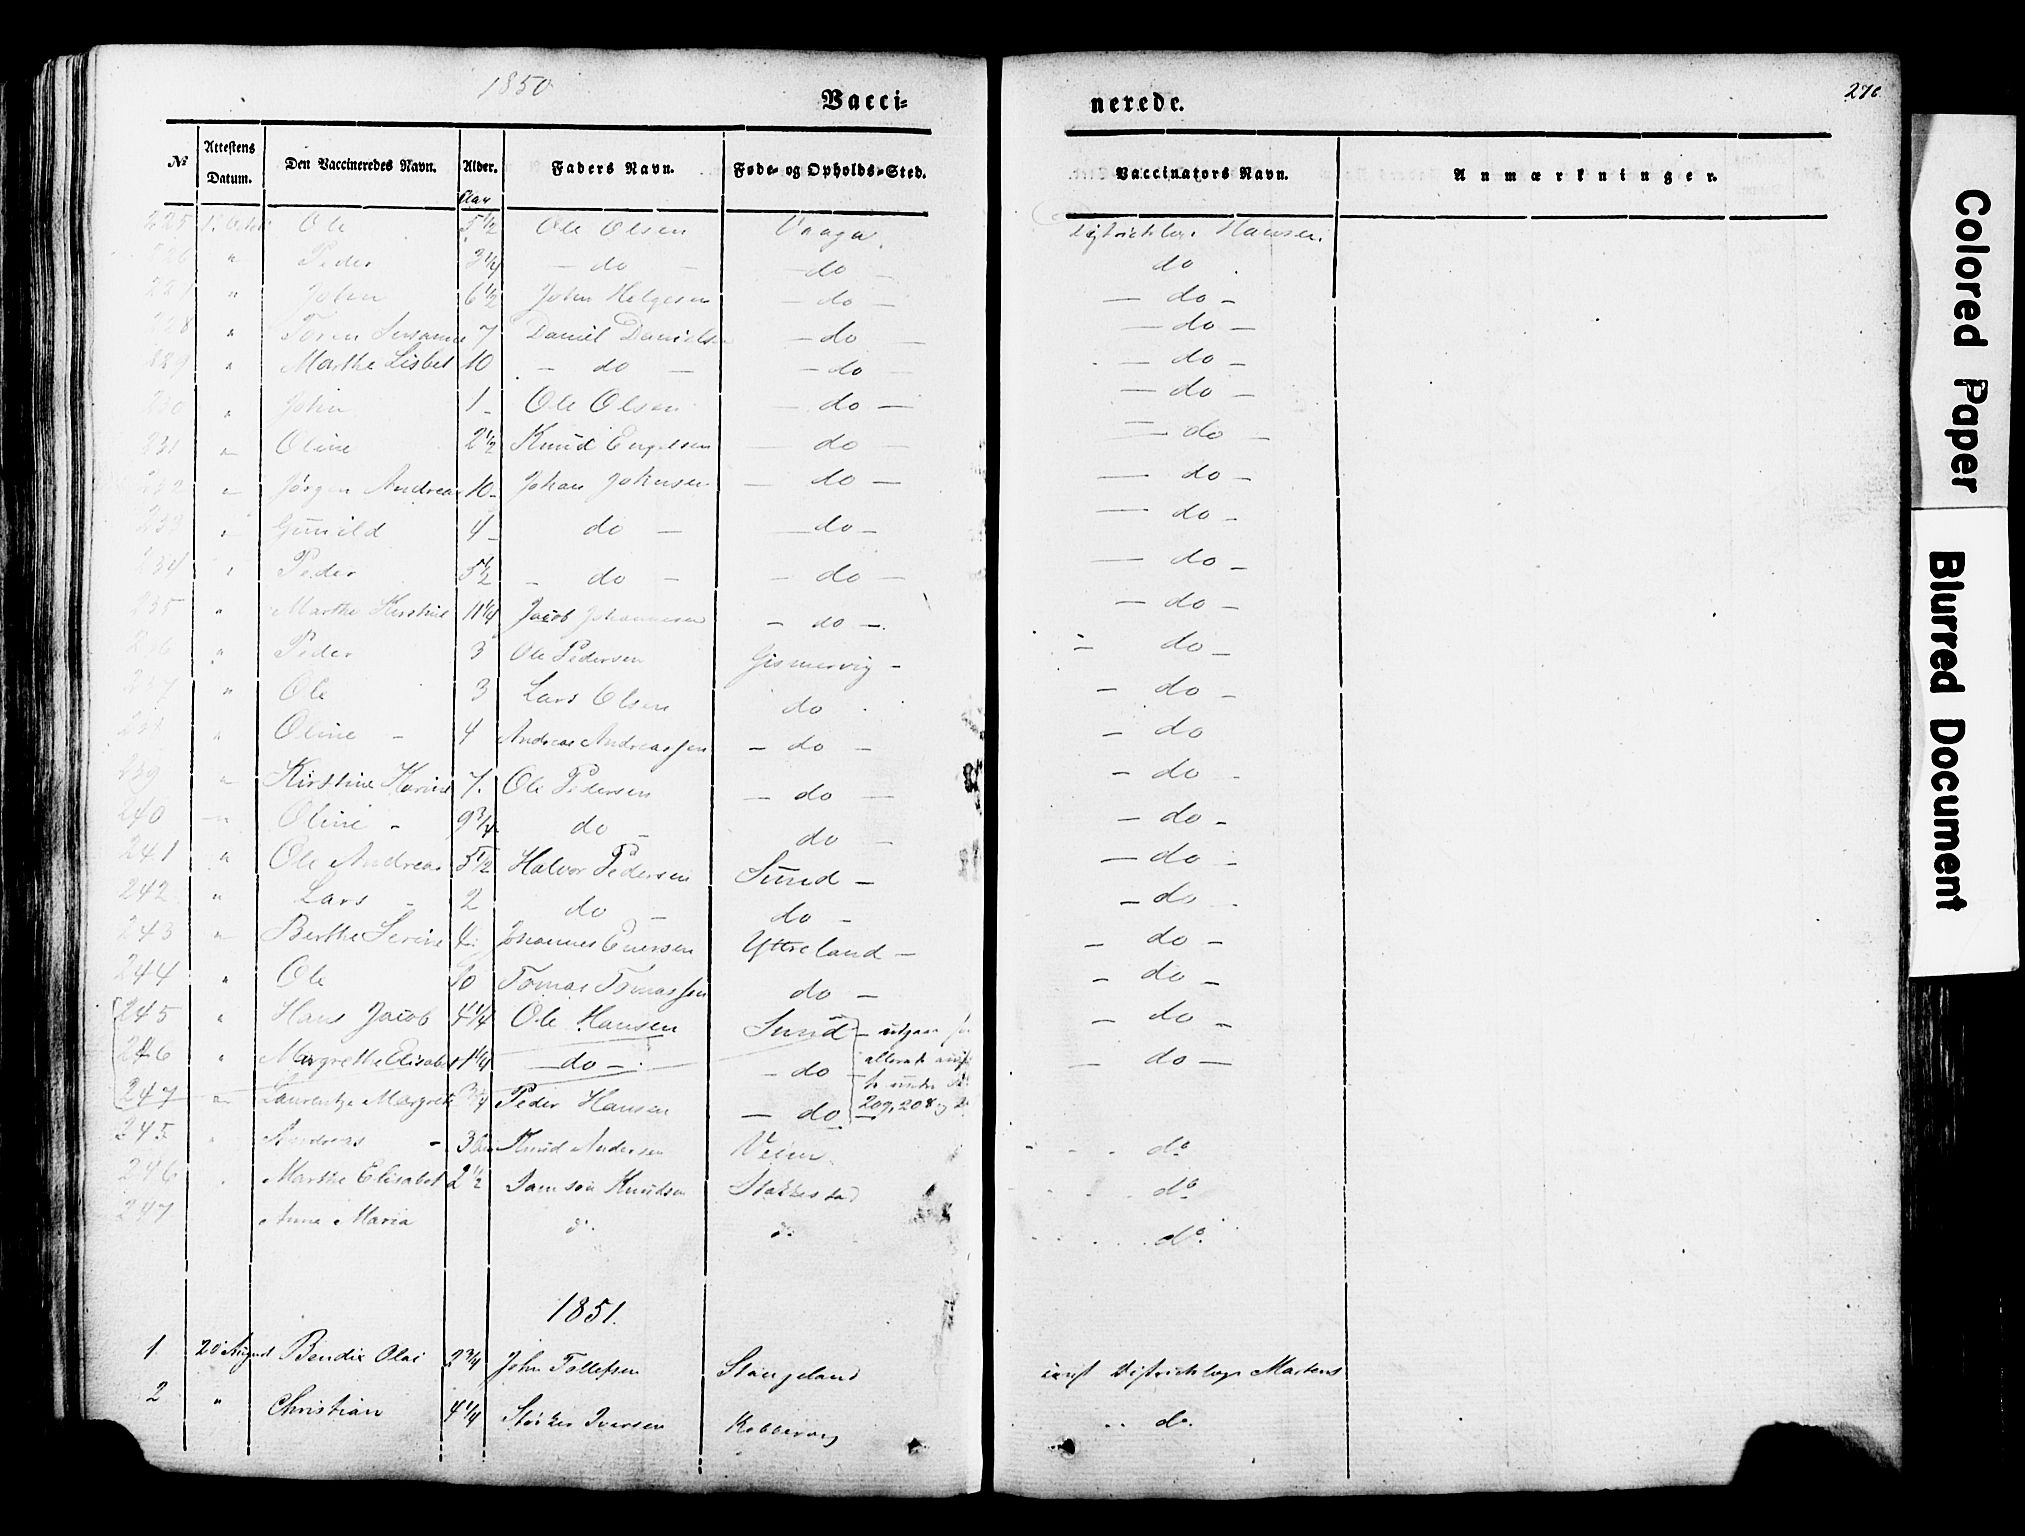 1850
Vacci-
nerede.
276
No Attestens Datum. Den Vaccineredes Navn. Alder. Faders Navn. Føde- og Opholds-Sted. Vaccinators Navn. Anmærkninger.
Aar
225 Ole 5 1/2 Ole Olsen Vaaga. Hansen.
226 " Peder 3 1/4 — do — — do — do
227 " John 6 1/2 John Helgesen — do — — do —
228 " Susanne 7 Daniel Danielsen — do — — do —
229 " Marthe Lisbet 10 — do — — do — — do —
230 " John 1 - Ole Olsen — do — — do —
231 " Oline 2 1/2 Knud Engelsen — do — — do —
232 " Jørgen Andreas 10 - Johan Johnsen — do — — do —
233 " Gunild 4 - do — — do — — do —
234 " Peder 5 1/2 — do — — do — — do —
235 " Marthe Kirstine 11 1/4 Jacob Johannesen — do — — do —
236 " Peder 3 Ole Pedersen Gismervig — — do —
237 " Ole 3 Lars Olsen do — do —
238 " Oline — 4 Andreas Andreassen — do — — do
239 " Kirstine Karine 7. Ole Pedersen — do — — do —
240 " Oline — 9 3/4 do — do — — do —
241 " Ole Andreas 5 1/2 Halvor Pedersen Sund — — do —
242 " Lars — 2 do — do — — do —
243 " Berthe Serine 4 Johannes Enersen Yttreland — — do —
244 " Ole 10 Tomas Tomassen do — — do —
245 " Hans Jacob 4 1/4 Ole Hansen Sund — — do —
246 " Margrethe Elisabet 1 1/4 — do — — do — — do —
247 " Laurentze Margrete 3/4 Peder Hansen — do
209, 208
245 " Andreas — 3 Knud Andersen Veien do
246 " Marthe Elisabet 2 1/2 Samson Knudsen Stakkestad do
247 Anna Maria do do do
1851.
1 20 August Bendix Olai 2 3/4 John Tollefsen Stangeland const Districtslæge Martens
2 " Christian 4 1/4 Størker Iversen Kobbervig " do
Colored Paper
Blurred Document